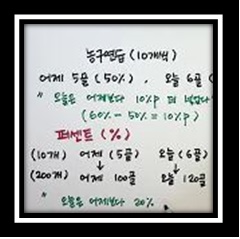 농구연습 (10개씩)
어제 5골 (50%), 오늘 6골 (
" 오늘은 어제보다 10%p 더 넣었다
(60% - 50% = 10%p)
퍼센트 (%)
(10개) 어제 (5골) 오늘 (6골)
↓ ↓
(200개) 어제 100골 오늘 120골
" 오늘은 어제보다 20%